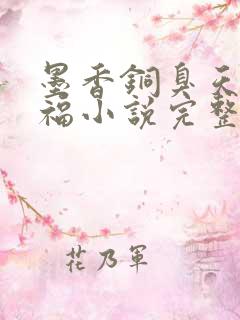 墨香銅臭天
福小說完整
花乃軍